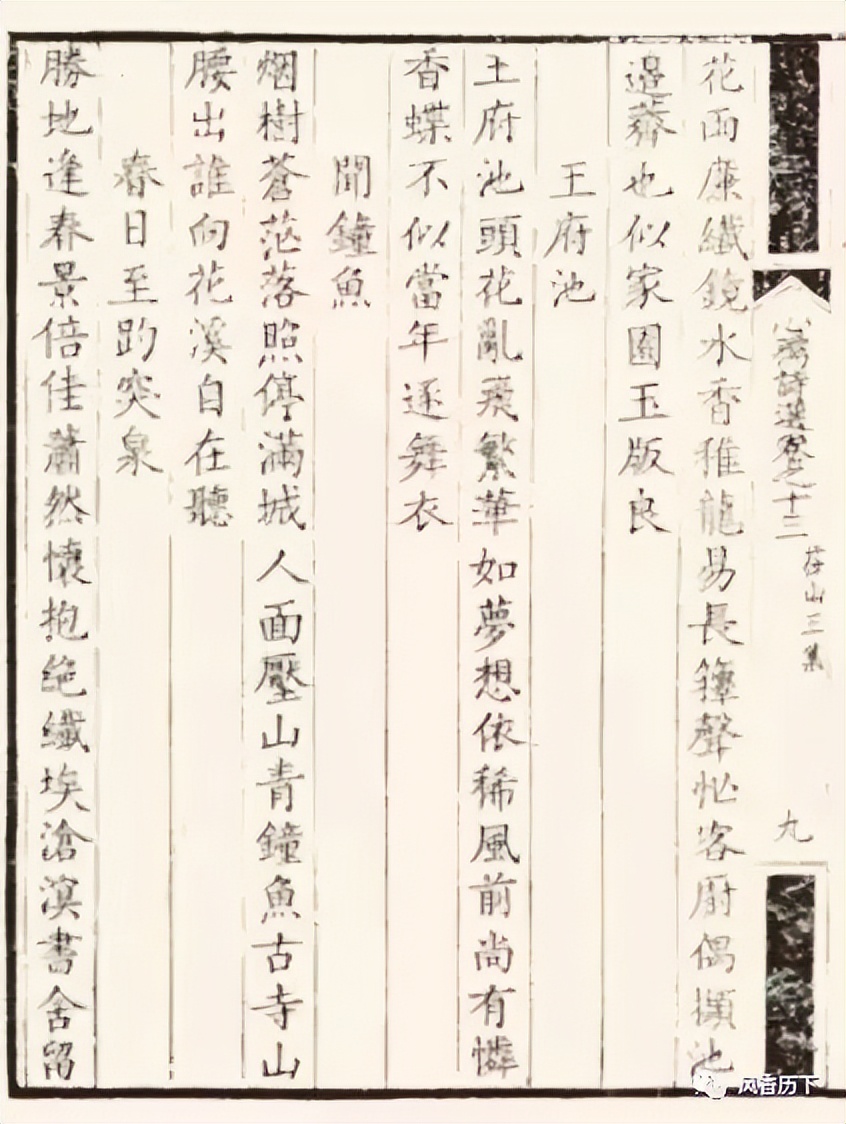 花面廉纖鏡水香稚龍易長籜聲忙客厨偶擷池
邉蔣也似家園玉版良
王府池
王府池頭花亂飛繁華如夢想依稀風前尚有憐
香蝶不似當年逐舞衣
聞鐘魚
烟樹蒼茫落照停滿城人面壓山青鐘魚古寺山
腰出誰向花溪自在聽
春日至趵突泉
勝地逢春景倍佳蕭然懷抱絶纖埃滄溟書舍留
詩選卷之十三
山三集
九
风香历下